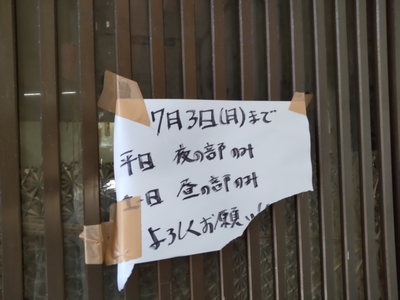 7月3日(月)まで
平日 夜の部のみ
土日 昼の部のみ
よろしくお願い